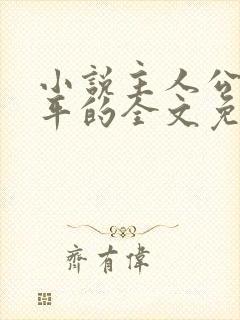 小説主人公
年的全文免
齊有偉